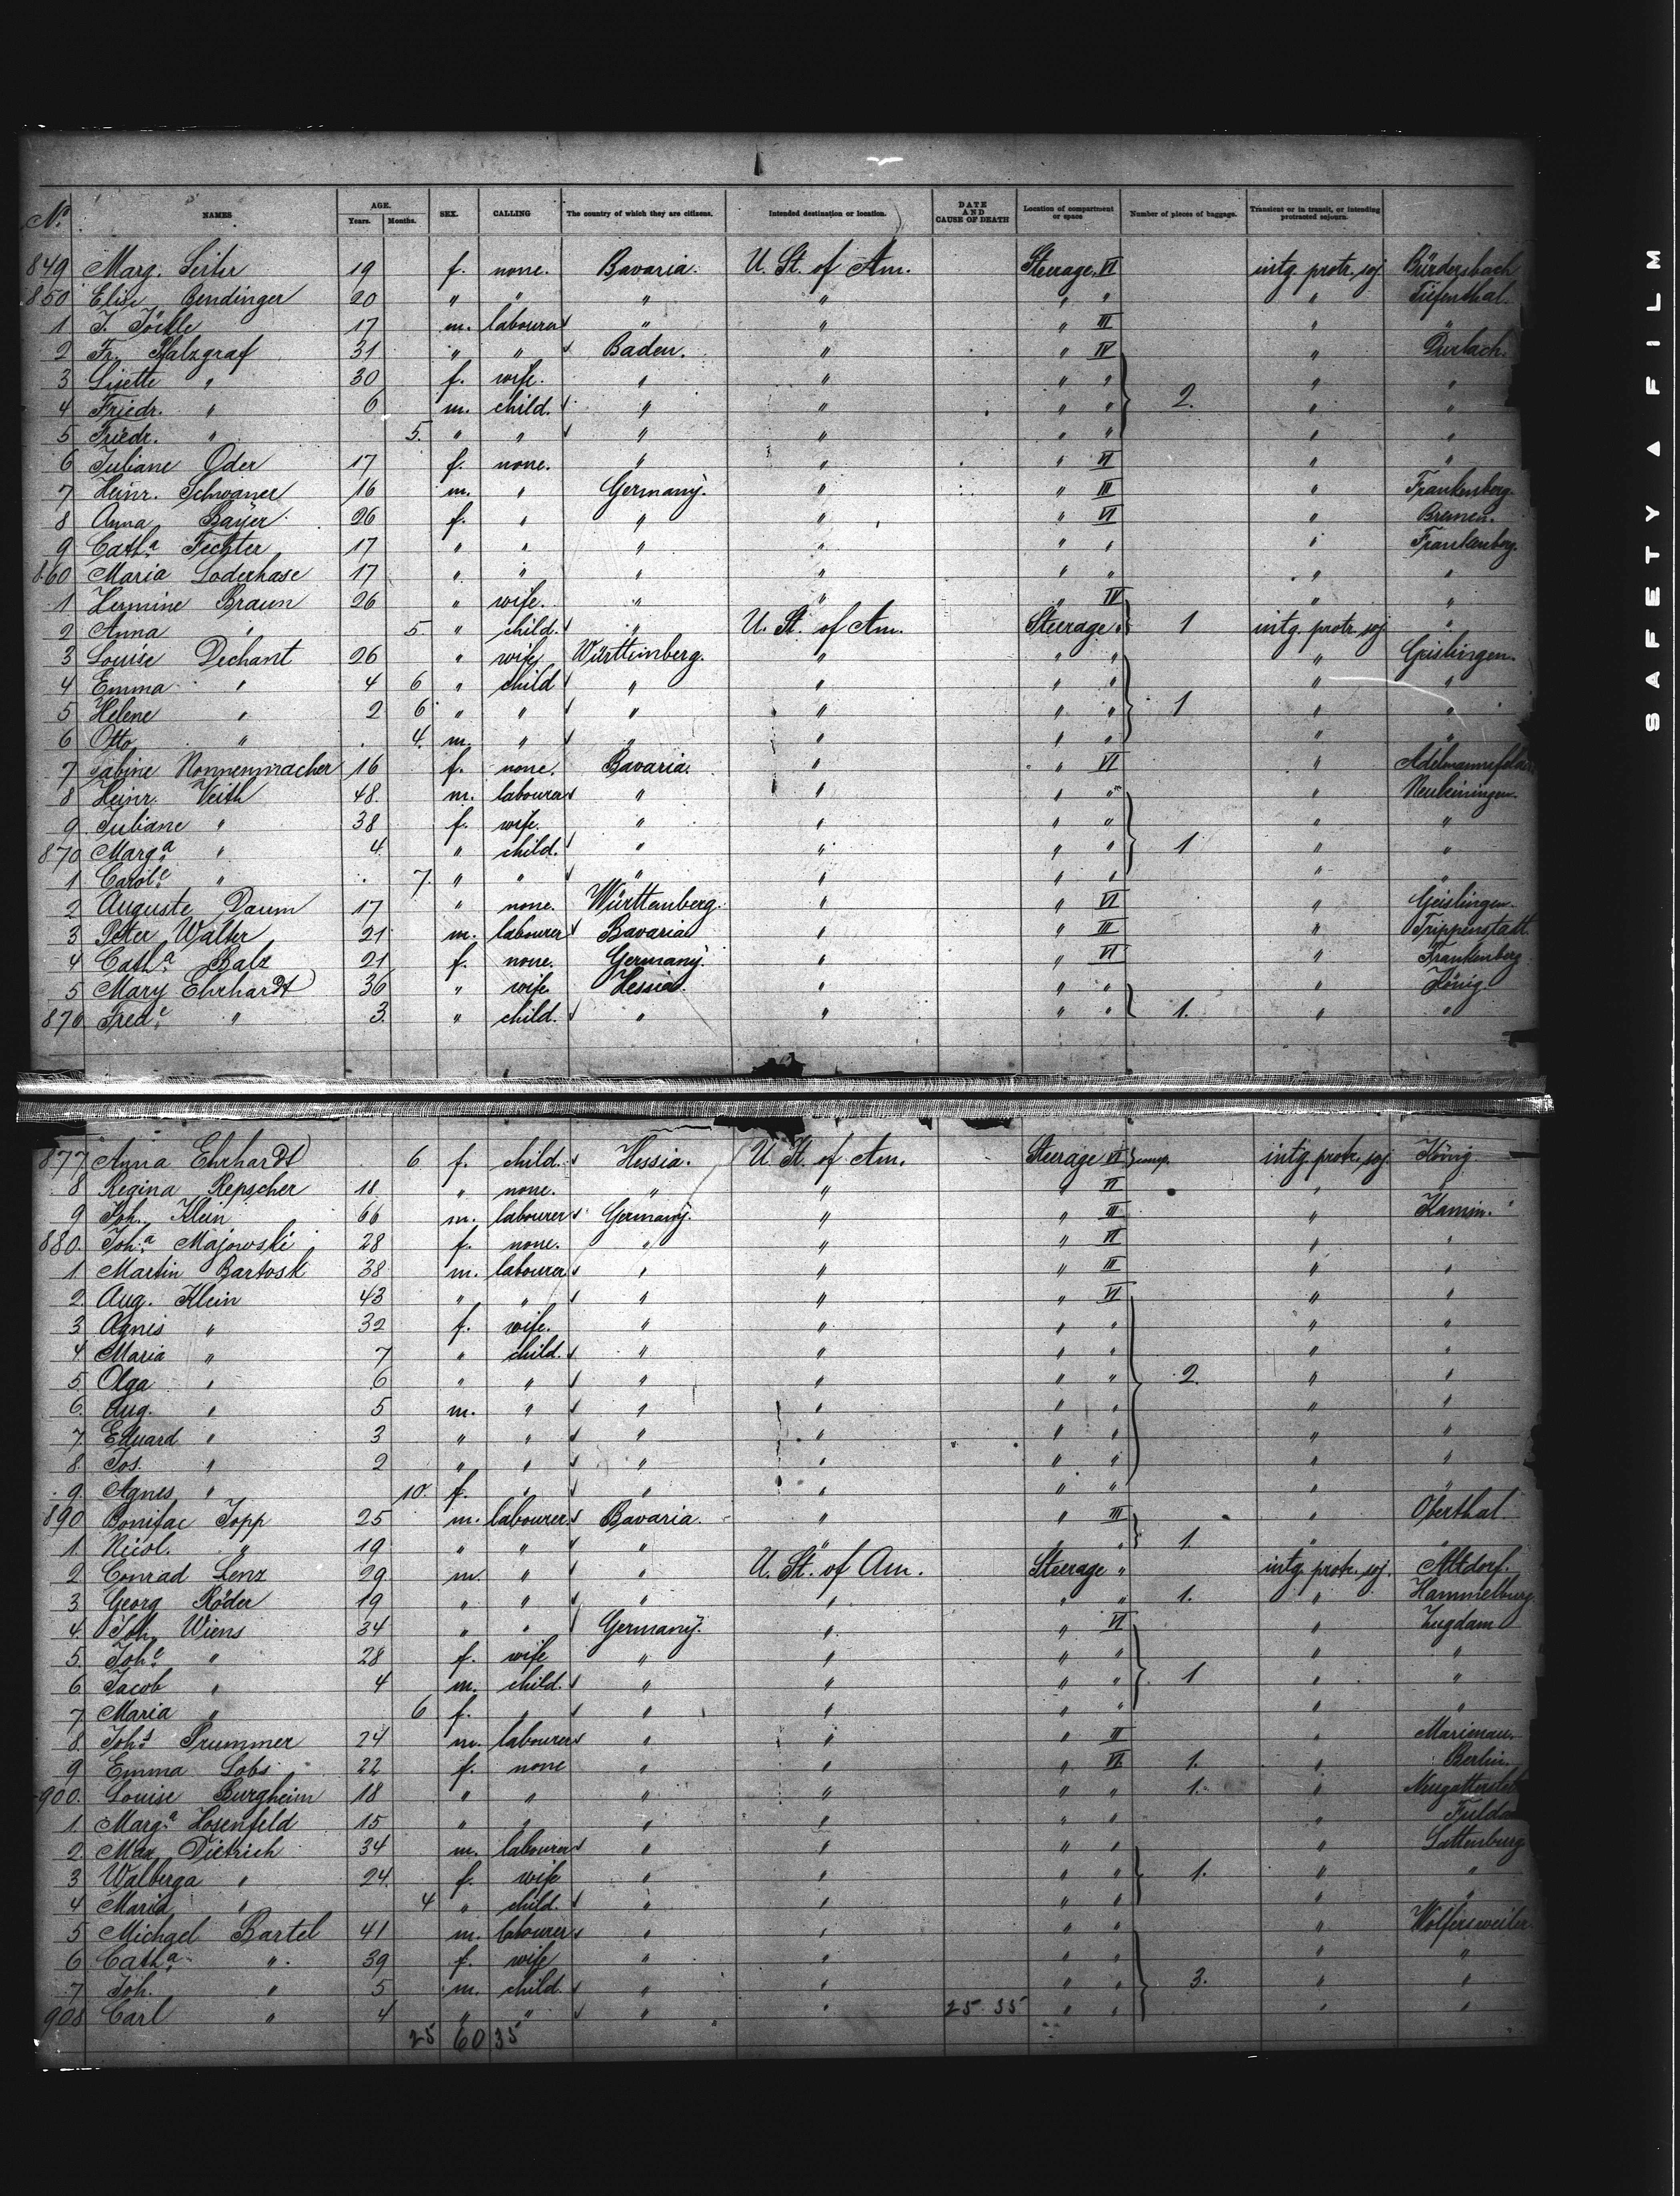 No. NAMES AGE. Years. Months. SEX. CALLING The country of which they are citizens. Intended destination or location. DATE AND CAUSE OF DEATH Location of compartment or space Number of pieces of baggage. Transient or in transit, or intending protracted sojourn.
849 Marg. Seiter 19 f. none. Bavaria. U. St. of Am. Steerage VI intg. protr. soj. Bürdersbach
850 Elise Bendinger 20 " " " " " " " Tiefenthal.
1 J. Jöckle 17 m. labourer " " " III " "
2 Fr. Pfalzgraf 31 " " Baden. " " IV " Durlach.
3 Lisette " 30 f. wife. " " " " " "
4 Friedr. " 6 m. child. " " " " 2. " "
5 Friedr. " 5. " " " " " " " "
6 Juliane Oder 17 f. none. " " " VI " "
7 Heinr. Schwaner 16 m. " Germany. " " III " Frankenberg.
8 Anna Bayer 26 f. " " " " VI " Bremen.
9 Cath.a Fechter 17 " " " " " " " Frankenberg.
860 Maria Loderhase 17 " " " " " " " "
1 Hermine Braun 26 " wife. " " " IV " "
2 Anna " 5. " child. " U. St. of Am. Steerage " 1 intg. protr. soj. "
3 Louise Dechant 26 " wife Württemberg. " " " " Geislingen.
4 Emma " 4 6 " child " " " " " "
5 Helene " 2 6 " " " " " " 1 " "
6 Otto " 4. m. " " " " " " "
7 Sabine Nonnenmacher 16 f. none. Bavaria. " " VI " Adelmannsfelden
8 Heinr. Veith 48. m. labourer " " " " " Neuleiningen.
9 Juliane " 38 f. wife. " " " " " "
870 Marg.a " 4. " child. " " " " 1 " "
1 Carol.e " 7. " " " " " " " "
2 Auguste Daum 17 " none. Württemberg. " " VI " Geislingen.
3 Peter Walter 21 m. labourer Bavaria " " III " Trippenstadt.
4 Cath.a Balz 21 f. none. Germany. " " VI " Frankenberg
5 Mary Ehrhardt 36 " wife Hessia. " " " " König.
876 Fred.e " 3. " child. " " " " 1. " "
877 Anna Ehrhardt 6 f. child. Hessia. U. St. of Am. Steerage VI intg. protr. soj. König
8 Regina Repscher 18. " none. " " " VI " "
9 Joh. Klein 66 m. labourer Germany. " " III " Kamin.
880. Joh.a Majowski 28 f. none. " " " VI " "
1 Martin Bartosk 38 m. labourer " " " III " "
2. Aug. Klein 43 " " " " " VI " "
3 Agnis " 32 f. wife. " " " " " "
4. Maria " 7 " child. " " " " " "
5. Olga " 6 " " " " " " 2. " "
6. Aug. " 5 m. " " " " " " "
7. Eduard " 3 " " " " " " " "
8. Jos. " 2 " " " " " " " "
9. Agnes " 10. f. " " " " " " "
890 Bonifac Topp 25 m. labourer Bavaria. " " III " Oberthal.
1. Nicol. " 19 " " " " " " 1. " "
2 Conrad Lenz 29 m. " " U. St. of Am. Steerage " intg. protr. soj. Altdorf.
3 Georg Röder 19 " " " " " " 1. " Hammelburg.
4. Joh. Wiens 34 " " Germany. " " VI " Zugdam
5. Joh.e " 28 f. wife " " " " " "
6 Jacob " 4 m. child. " " " " 1 " "
7. Maria " 6 f. " " " " " " "
8. Joh.s Prummer 24 m. labourer " " " III " Marienau.
9 Emma Lobs 22 f. none " " " VI 1. " Berlin.
900. Louise Burgheim 18 " " " " " " 1. "
1. Marg.a Hosenfeld 15 " " " " " " " Fulda
2. Max Dietrich 34 m. labourer " " " " " Lattenburg
3 Walberga " 24. f. wife " " " " 1. " "
4 Maria " 4 " child. " " " " " "
5 Michael Bartel 41 m. labourer " " " " " Wolfersweiler
6 Cath.a " 39 f. wife " " " " " "
7 Joh. " 5 m. child. " " " " 3. " "
908 Carl " 4 " " " " 25 35 " " " "
25 60 35
SAFETY FILM